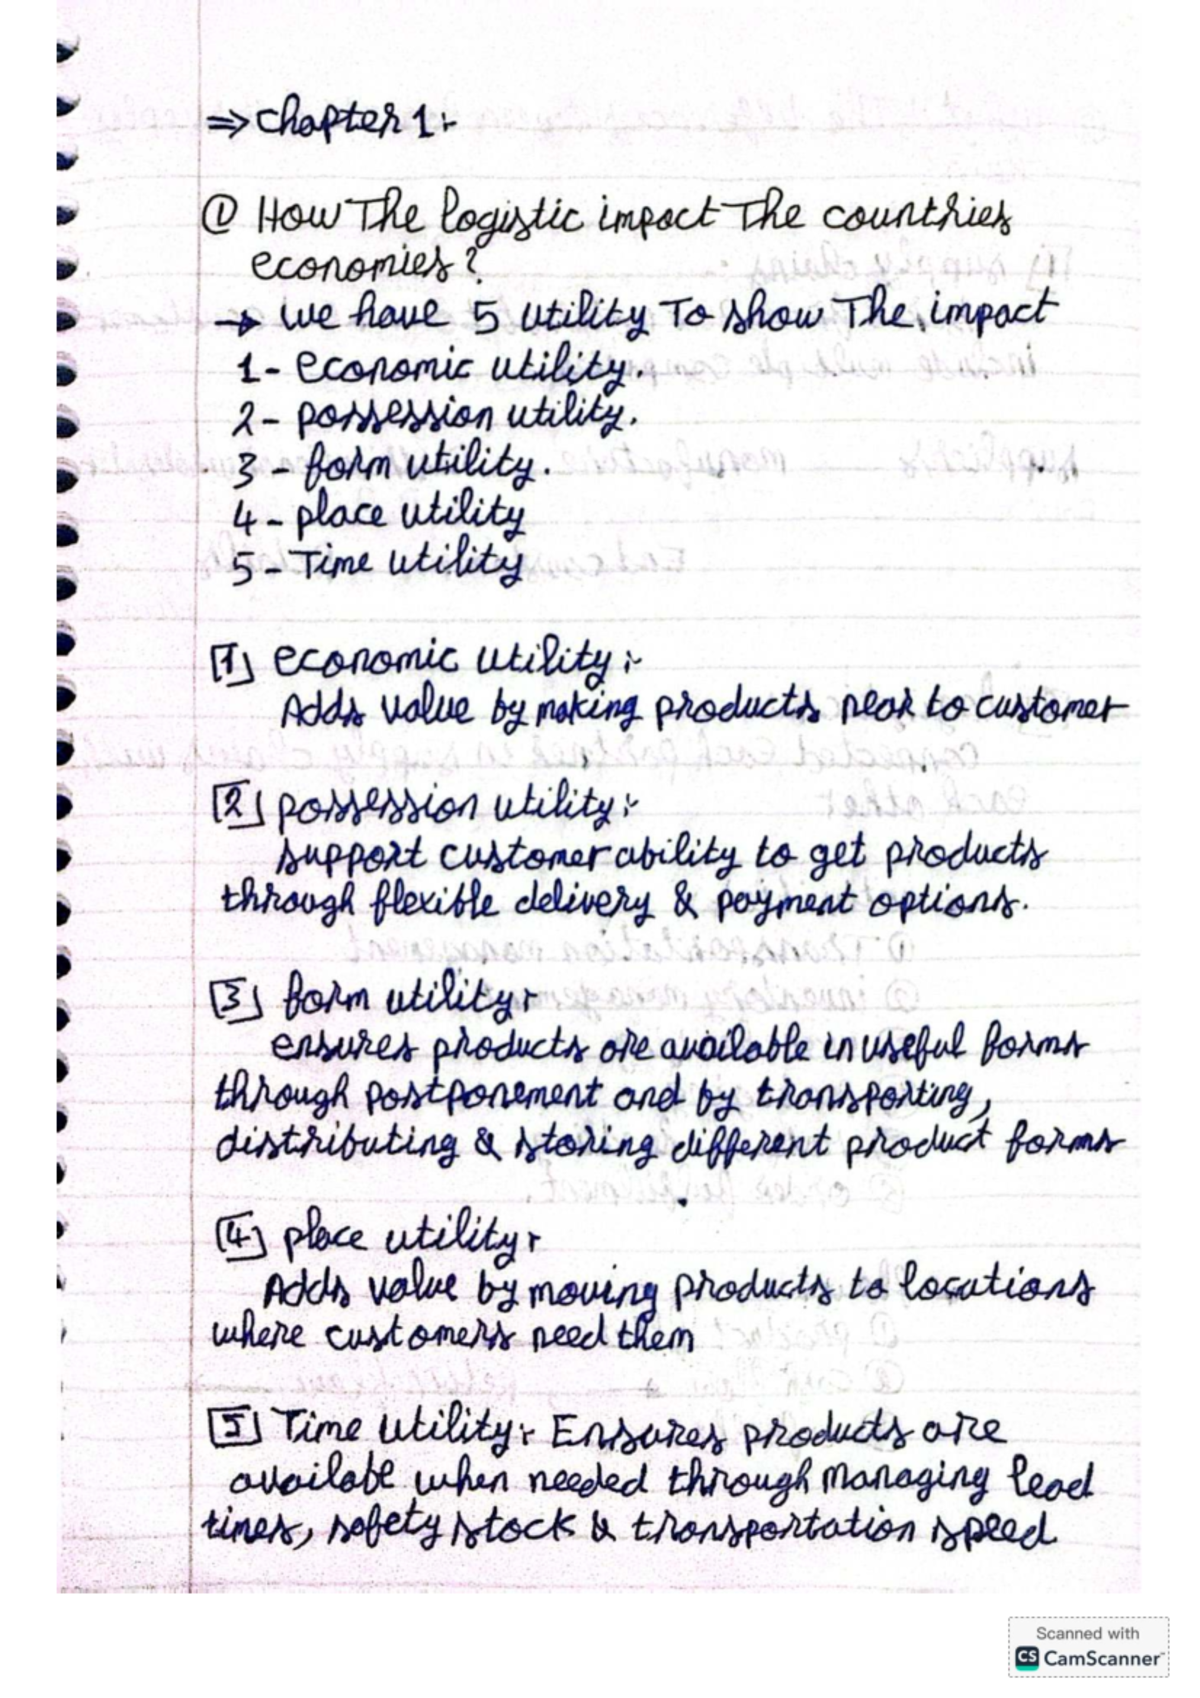 ⇒ chapter 1:-
① How The logistic impact The countries
economies?
→ we have 5 utility To show The impact
1- economic utility.
2- possession utility.
3- form utility.
4- place utility
5- Time utility
[1] economic utility:-
Adds value by making products near to customer
[2] possession utility:-
support customer ability to get products
through flexible delivery & payment options.
[3] form utility:-
ensures products are available in useful forms
through postponement and by transporting,
distributing & storing different product forms
[4] place utility:-
Adds value by moving products to locations
where customers need them
[5] Time utility:- Ensures products are
availabe when needed through managing lead
times, safety stock & transportation speed
Scanned with
CS CamScanner